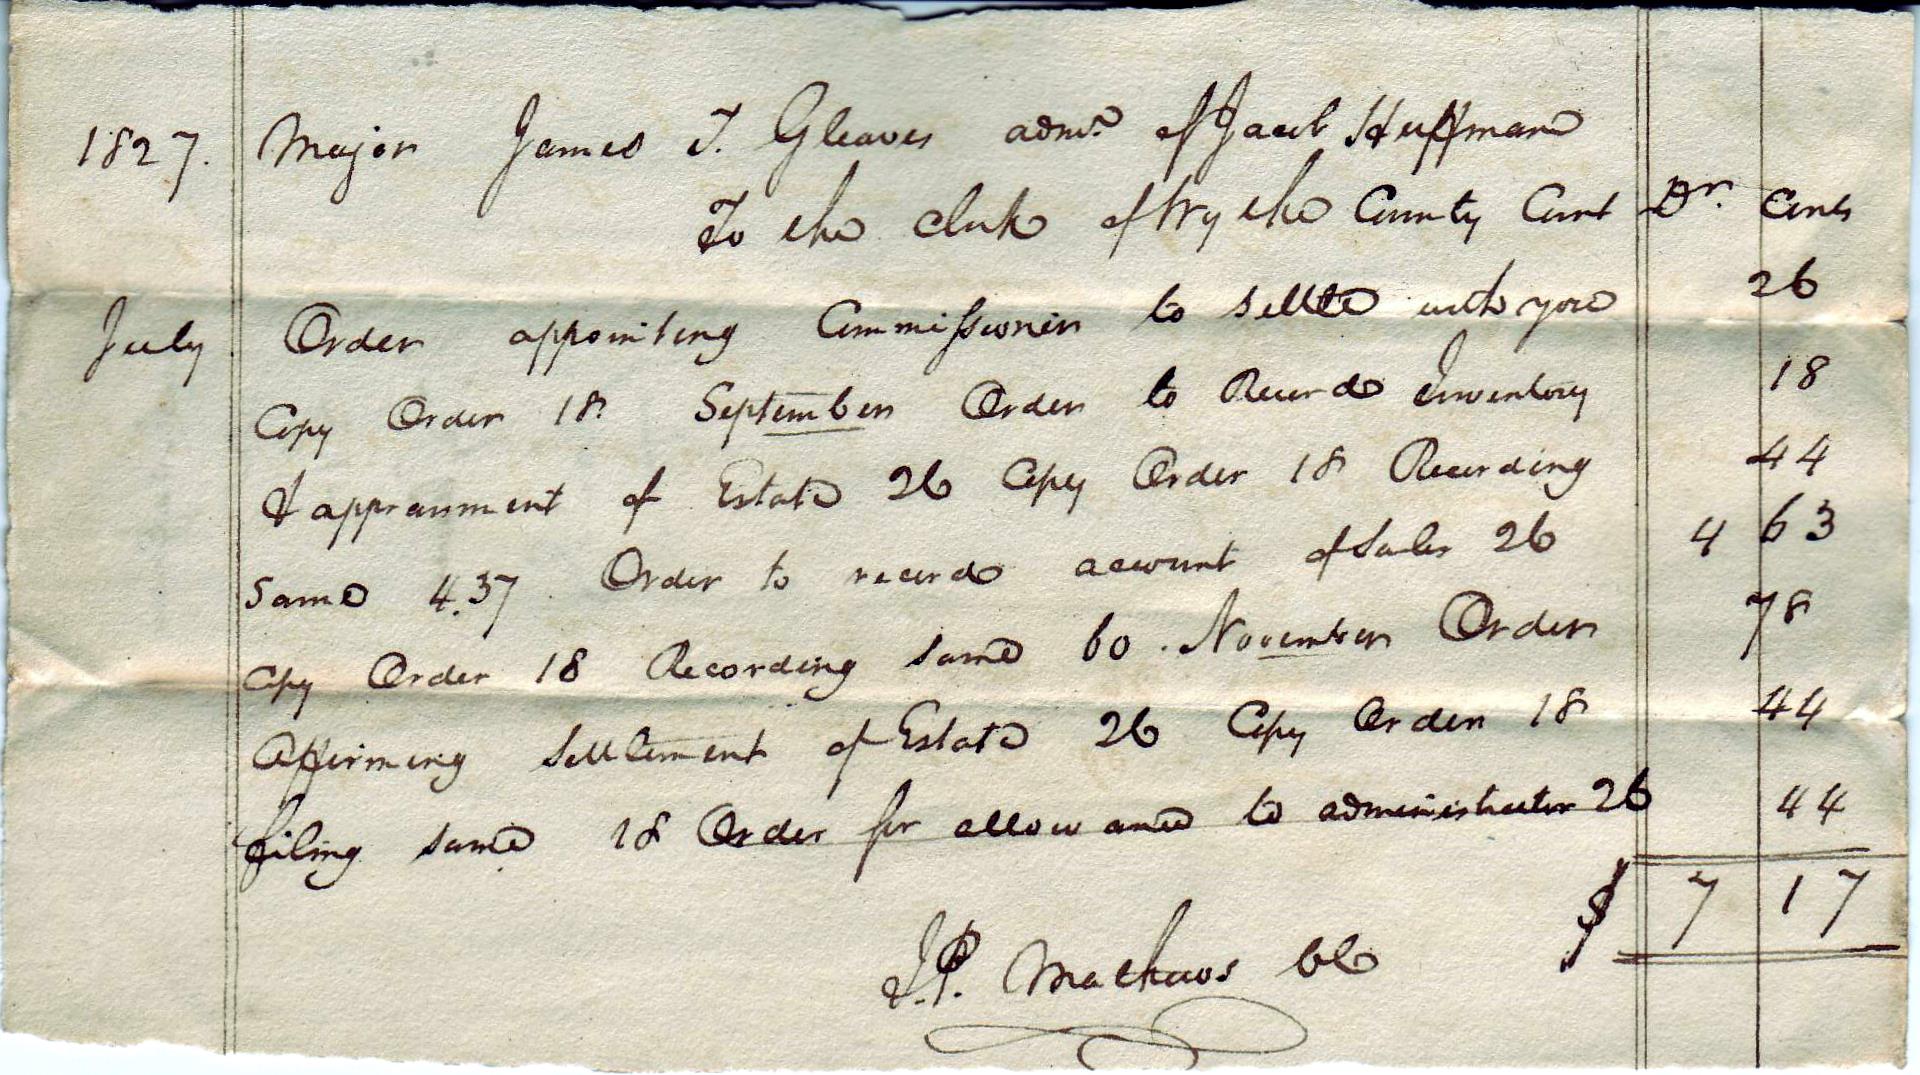 1827. Major James T. Gleaves admr. of Jacob Huffman
To the clerk of Wythe County Court Dr. Cents
July Order appointing Commissioners to settle with you 26
Copy Order 18. September Order to Record Inventory 18
& appraisment of Estate 26 Copy Order 18 Recording 44
same 4.37 Order to record account of Sales 26 4 63
Copy Order 18 Recording same 60. November Order 78
Affirming settlement of Estate 26 Copy Order 18 44
filing same 18 Order for allowance to administrator 26 44
$ 7 17
J.P. Mathews